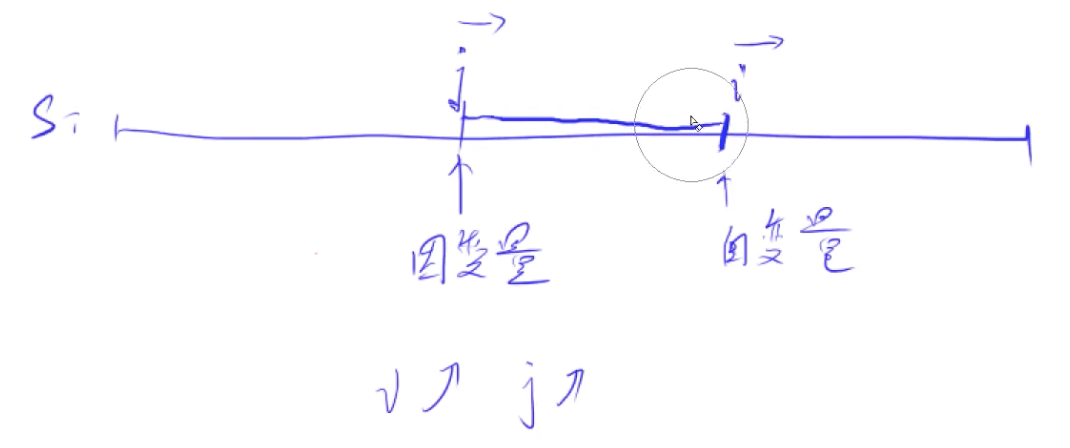 j i
S:
因变量 自变量
i↗ j↗